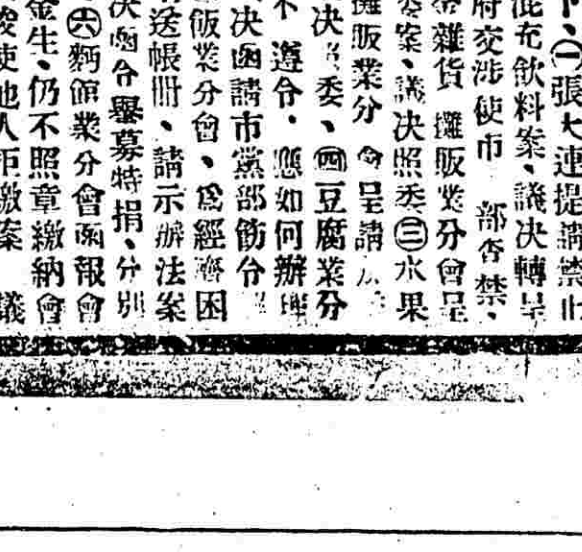 下、㊀張大連提議禁止
混充飲料案、議决轉呈
府交涉使市　部否禁、
雜貨　攤販業分會呈
委案、議决照委㊂水果
攤販業分會呈請
决　委、㊃豆腐業分
不遵令、應如何辦理
决函請市黨部飭令
飯業分會、爲經濟困
請送帳冊、請示辦法案
决函令舉募特捐、分別
㊅麵館業分會函報會
金生、仍不照章繳納會
唆使他人拒繳案　議